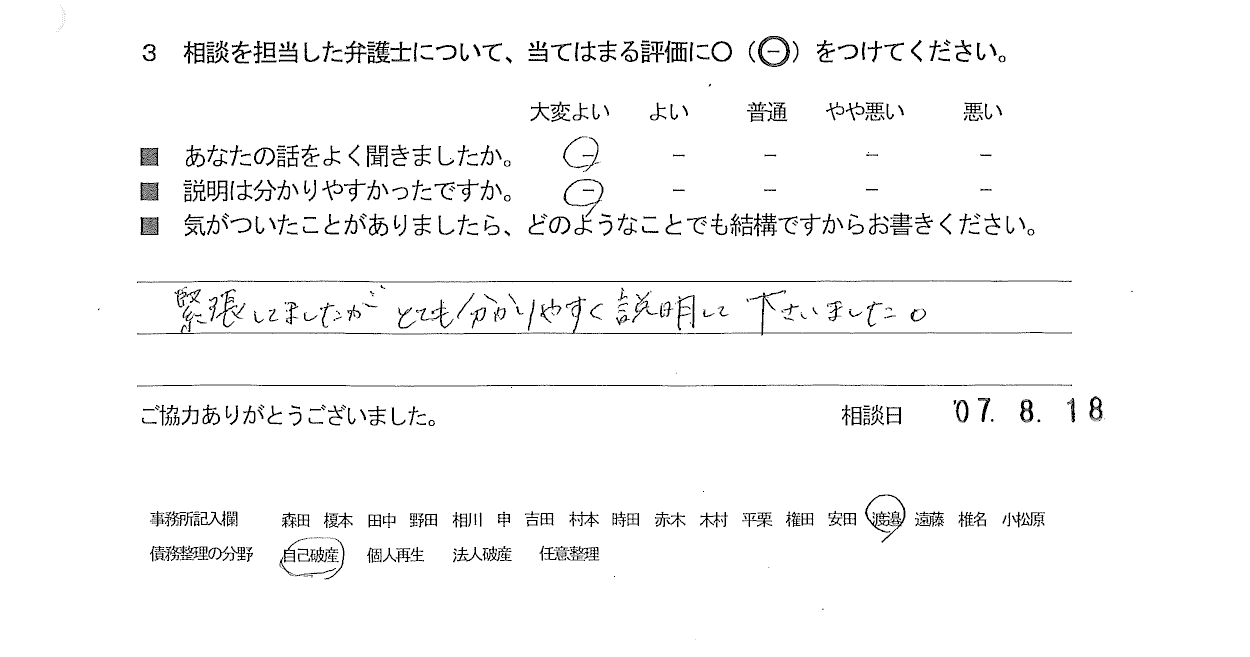 3 相談を担当した弁護士について、当てはまる評価に〇（㊀）をつけてください。
大変よい よい 普通 やや悪い 悪い
■ あなたの話をよく聞きましたか。 － － － － －
■ 説明は分かりやすかったですか。 － － － － －
■ 気がついたことがありましたら、どのようなことでも結構ですからお書きください。
緊張してましたが とても分かりやすく説明して下さいました。
ご協力ありがとうございました。 相談日 '07. 8. 18
事務所記入欄 森田 榎本 田中 野田 相川 申 吉田 村本 時田 赤木 木村 平栗 権田 安田 渡邉 遠藤 椎名 小松原
債務整理の分野 自己破産 個人再生 法人破産 任意整理